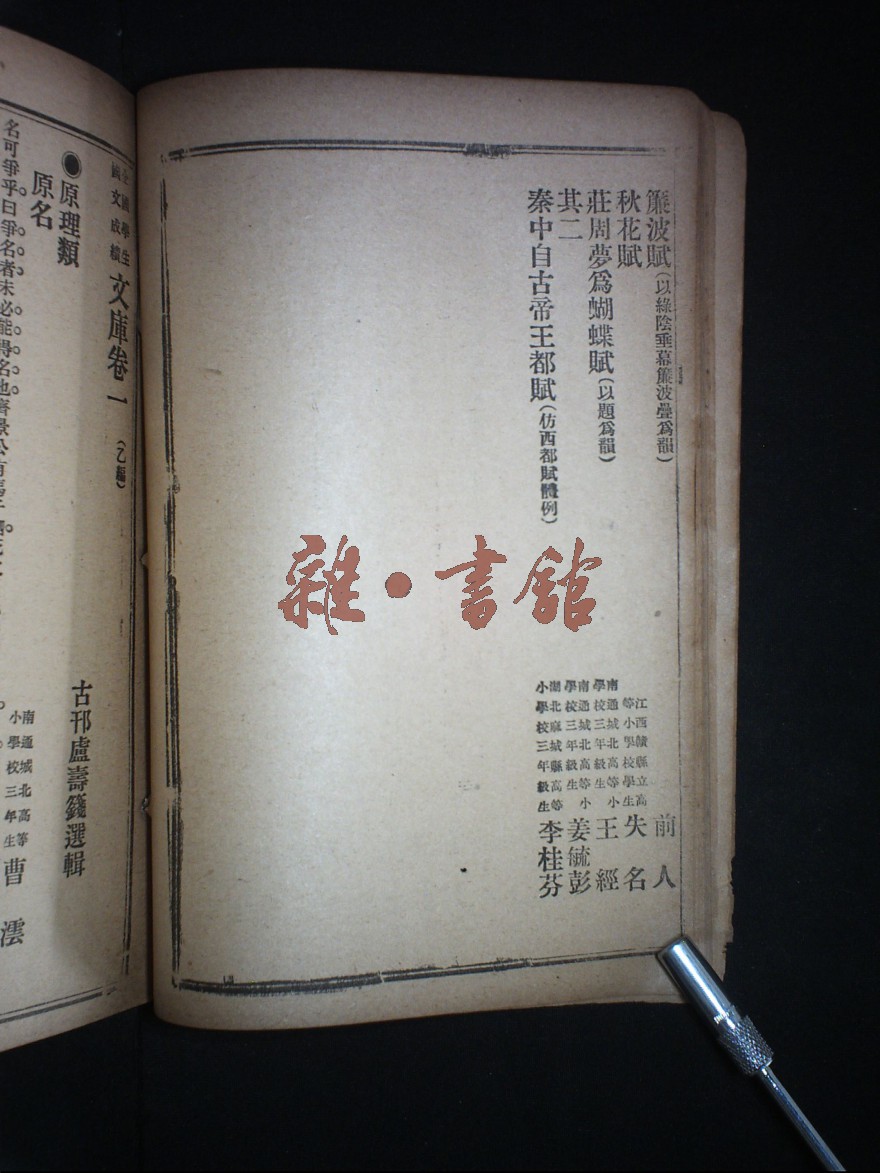 簾波賦(以綠陰垂幕簾波疊爲韻) 前人
秋花賦 江西贛縣立高等小學校學生 失名
莊周夢爲蝴蝶賦(以題爲韻) 南通城北高等小學校三年級生 王經
其二 南通城北高等小學校三年級生 姜毓彭
秦中自古帝王都賦(仿西都賦體例) 湖北麻城縣高等小學校三年級生 李桂芬
雜·書館
全國學生國文成績文庫卷一(乙編)
古邗盧壽籛選輯
◉原理類
原名 南通城北高等小學校三年生 曹澐
名可爭乎曰爭名者未必能得名也齊景公有馬千